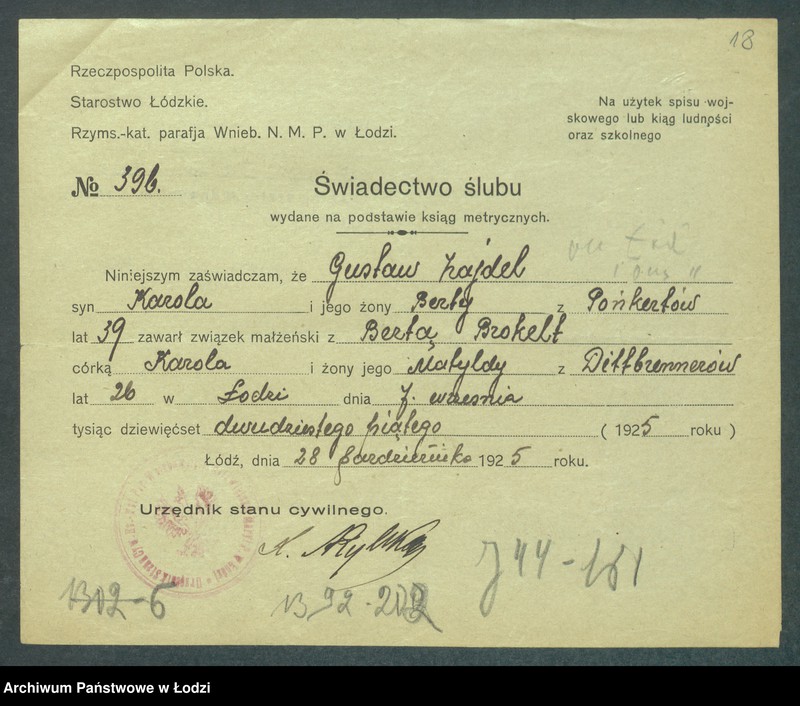 18
Rzeczpospolita Polska.
Starostwo Łódzkie.
Rzyms.-kat. parafja Wnieb. N. M. P. w Łodzi.
Na użytek spisu woj-
skowego lub kiąg ludności
oraz szkolnego
№ 396.
Świadectwo ślubu
wydane na podstawie ksiąg metrycznych.
Niniejszym zaświadczam, że Gustaw Zajdel
syn Karola i jego żony Berty z Pońkertów
lat 39 zawarł związek małżeński z Bertą Brokelt
córką Karola i żony jego Matyldy z Dittbrennerów
lat 26 w Łodzi dnia 7. września
tysiąc dziewięćset dwudziestego piątego (1925 roku)
Łódź, dnia 28 Października 1925 roku.
Urzędnik stanu cywilnego.
1392-202
J 44-151
Archiwum Państwowe w Łodzi